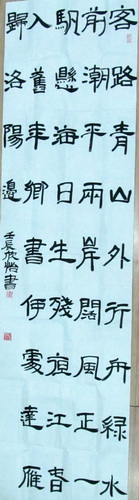 客路青山外行舟綠水
前潮平兩岸闊風正一
帆懸海日生殘夜江春
入舊年鄉書何處達雁
歸洛陽邊
壬辰 書